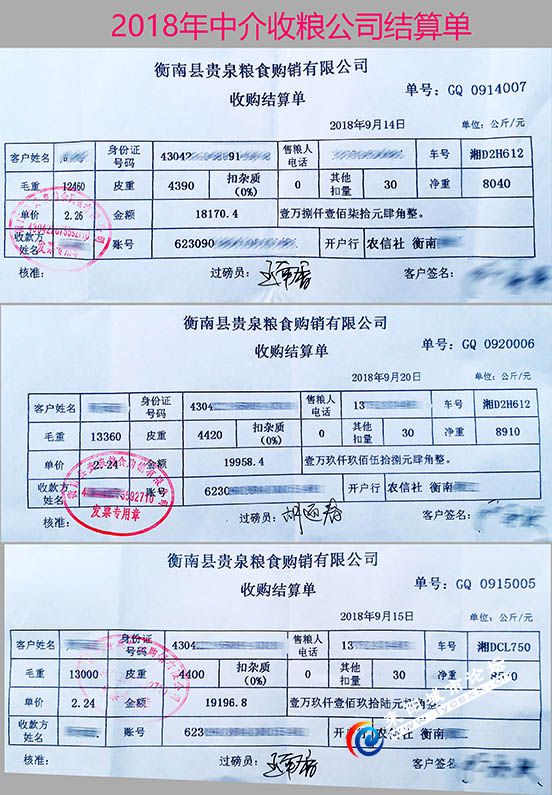 2018年中介收粮公司结算单
衡南县贵泉粮食购销有限公司
收购结算单
单号：GQ 0914007
2018年9月14日 单位：公斤/元
客户姓名 身份证号码 43042 91 售粮人电话 车号 湘D2H612
毛重 12460 皮重 4390 扣杂质(0%) 0 其他扣量 30 净重 8040
单价 2.26 金额 18170.4 壹万捌仟壹佰柒拾元肆角整。
收款方姓名 账号 623090 开户行 农信社 衡南
核准： 过磅员： 客户签名：
发票专用章
衡南县贵泉粮食购销有限公司
收购结算单
单号：GQ 0920006
2018年9月20日 单位：公斤/元
客户姓名 身份证号码 4304 售粮人电话 13 车号 湘D2H612
毛重 13360 皮重 4420 扣杂质(0%) 0 其他扣量 30 净重 8910
单价 2.24 金额 19958.4 壹万玖仟玖佰伍拾捌元肆角整。
收款方姓名 账号 6230 开户行 农信社 衡南
核准： 过磅员： 客户签名：
发票专用章
衡南县贵泉粮食购销有限公司
收购结算单
单号：GQ 0915005
2018年9月15日 单位：公斤/元
客户姓名 身份证号码 4304 售粮人电话 13 车号 湘DCL750
毛重 13000 皮重 4400 扣杂质(0%) 0 其他扣量 30 净重 8570
单价 2.24 金额 19196.8 壹万玖仟壹佰玖拾陆元捌角整。
收款方姓名 账号 623 开户行 农信社 衡南
核准： 过磅员： 客户签名：